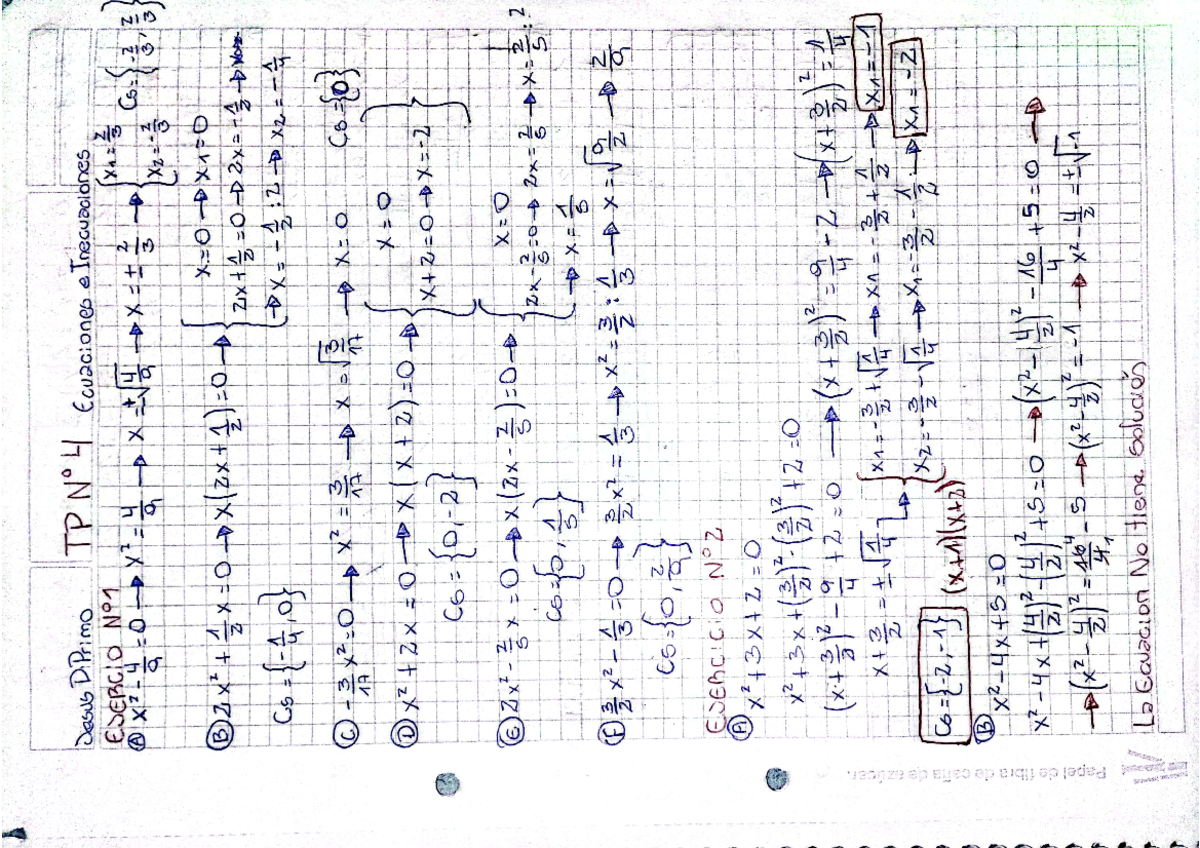 Jesus DiPrimo TP N°4 Ecuaciones e Inecuaciones
EJERCICIO N°1
Ⓐ x² - 4/9 = 0 → x² = 4/9 → x = ±√4/9 → x = ± 2/3 → { x1 = 2/3 x2 = -2/3 } Cs = {-2/3, 2/3}
Ⓑ 2x² + 1/2 x = 0 → x(2x + 1/2) = 0 → { x = 0 → x1 = 0
2x + 1/2 = 0 → 2x = -1/2 →
→ x = -1/2 : 2 → x2 = -1/4
Cs = {-1/4, 0}
Ⓒ -3/17 x² = 0 → x² = 3/17 → x = √3/17 → x = 0 Cs = {0}
Ⓓ x² + 2x = 0 → x(x + 2) = 0 → { x = 0
x + 2 = 0 → x = -2 }
Cs = {0, -2}
Ⓔ 2x² - 2/5 x = 0 → x(2x - 2/5) = 0 → { x = 0
2x - 2/5 = 0 → 2x = 2/5 → x = 2/5 : 2
→ x = 1/5
Cs = {0, 1/5}
Ⓕ 3/2 x² - 1/3 = 0 → 3/2 x² = 1/3 → x² = 3/2 : 1/3 → x = √9/2 → 2/9
Cs = {0, 2/9}
EJERCICIO N°2
Ⓐ x² + 3x + 2 = 0
x² + 3x + (3/2)² - (3/2)² + 2 = 0
(x + 3/2)² - 9/4 + 2 = 0 → (x + 3/2)² = 9/4 - 2 → (x + 3/2)² = 1/4
x + 3/2 = ±√1/4 → { x1 = -3/2 + √1/4 → x1 = -3/2 + 1/2 → x1 = -1
x2 = -3/2 - √1/4 → x1 = -3/2 - 1/2 → x1 = -2
Cs = {-2, -1} (x+1)(x+2)
Ⓑ x² - 4x + 5 = 0
x² - 4x + (4/2)² - (4/2)² + 5 = 0 → (x² - 4/2)² - 16/4 + 5 = 0 →
→ (x² - 4/2)² = 16⁴/4₁ - 5 → (x² - 4/2)² = -1 → x² - 4/2 = ±√-1
La Ecuacion No tiene Solución
Papel de fibra de caña de azúcar.